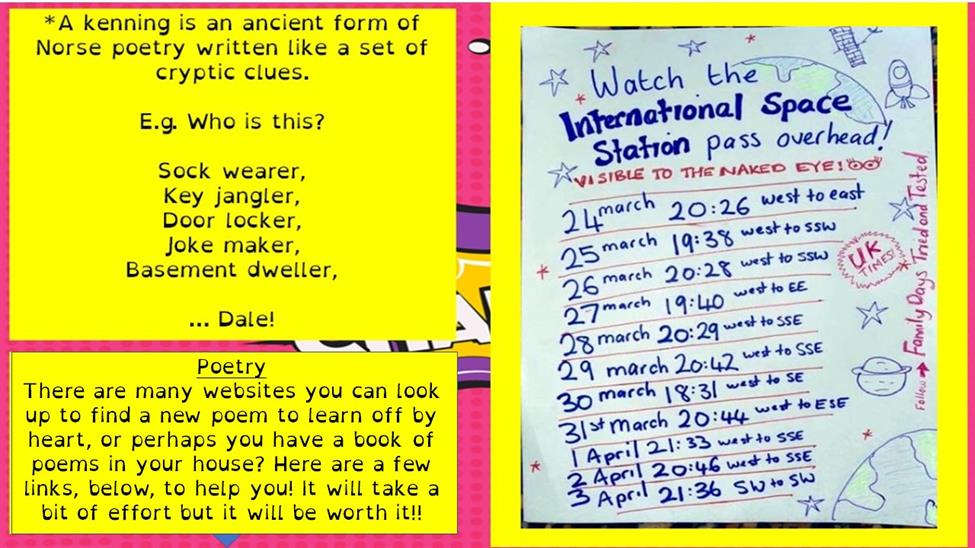 *A kenning is an ancient form of
Norse poetry written like a set of
cryptic clues.
E.g. Who is this?
Sock wearer,
Key jangler,
Door locker,
Joke maker,
Basement dweller,
... Dale!
Poetry
There are many websites you can look
up to find a new poem to learn off by
heart, or perhaps you have a book of
poems in your house? Here are a few
links, below, to help you! It will take a
bit of effort but it will be worth it!!
Watch the
International Space
Station pass overhead!
VISIBLE TO THE NAKED EYE!
24 march 20:26 west to east
25 march 19:38 west to SSW
26 march 20:28 west to SSW
27 march 19:40 west to EE
28 march 20:29 west to SSE
29 march 20:42 west to SSE
30 march 18:31 west to SE
31st march 20:44 west to ESE
1 April 21:33 west to SSE
2 April 20:46 west to SSE
3 April 21:36 SW to SW
UK
TIMES!
Follow → Family Days Tried and Tested